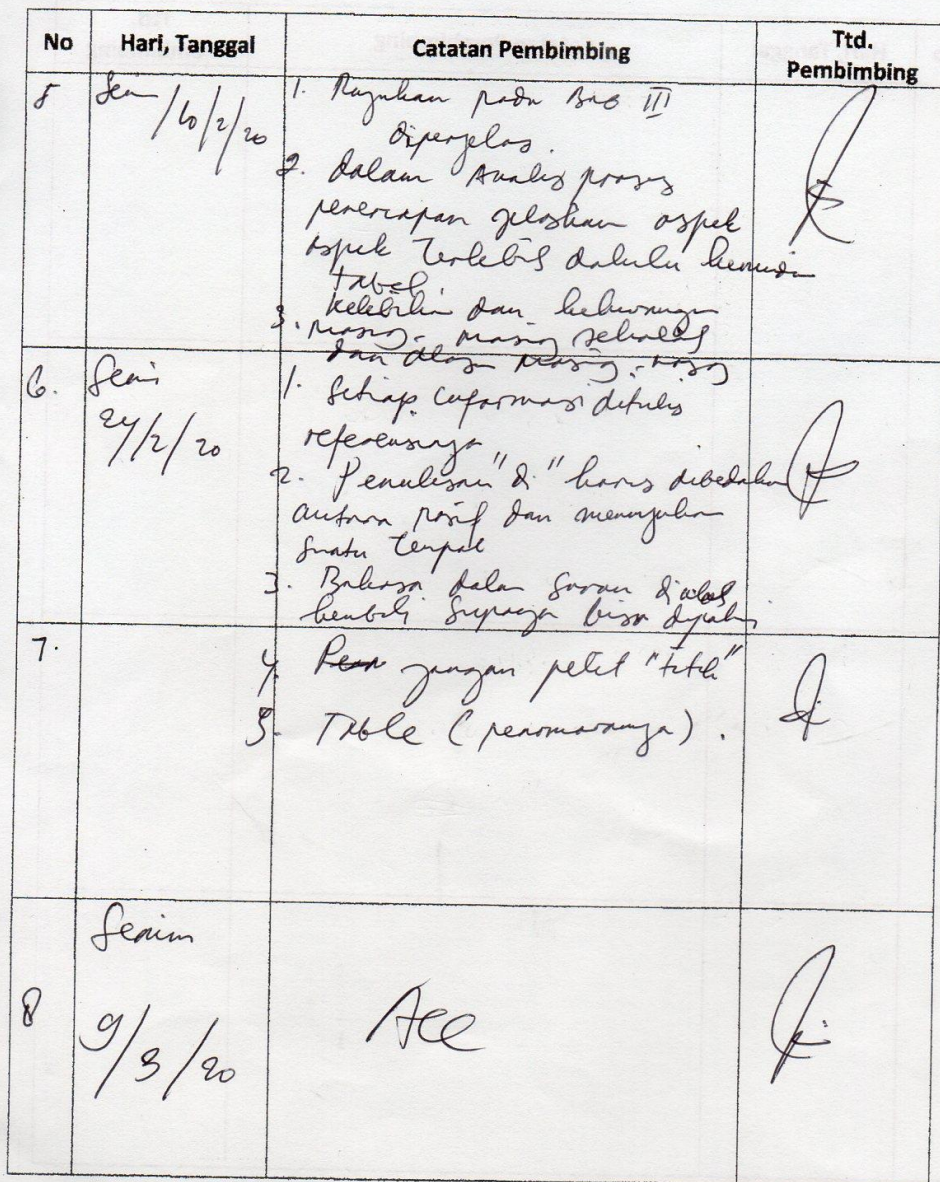 No Hari, Tanggal Catatan Pembimbing Ttd. Pembimbing
5 Senin /10/2/20 1. Rujukan pada BAB III
diperjelas.
2. dalam Analis proses
penerapan jelaskan aspek
aspek Terlebih dahulu kemudian
tabel.
3. Kelebihan dan kekurangan
masing-masing sekolah
dan masing-masing
6. Senin 24/2/20 1. Setiap informasi ditulis
referensinya
2. Penulisan "di" harus dibedakan
antara pasif dan menunjukan
suatu Tempat
3. Bahasa dalam Saran
kembali Supaya bisa
7. 4. jangan pelit "titik"
5. Table (penomorannya).
8 Senin 9/3/20 Acc